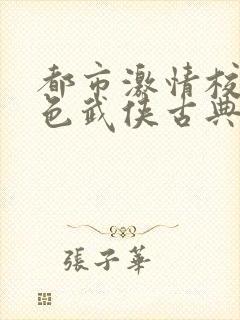 都市激情校
色武侠古典
張子華